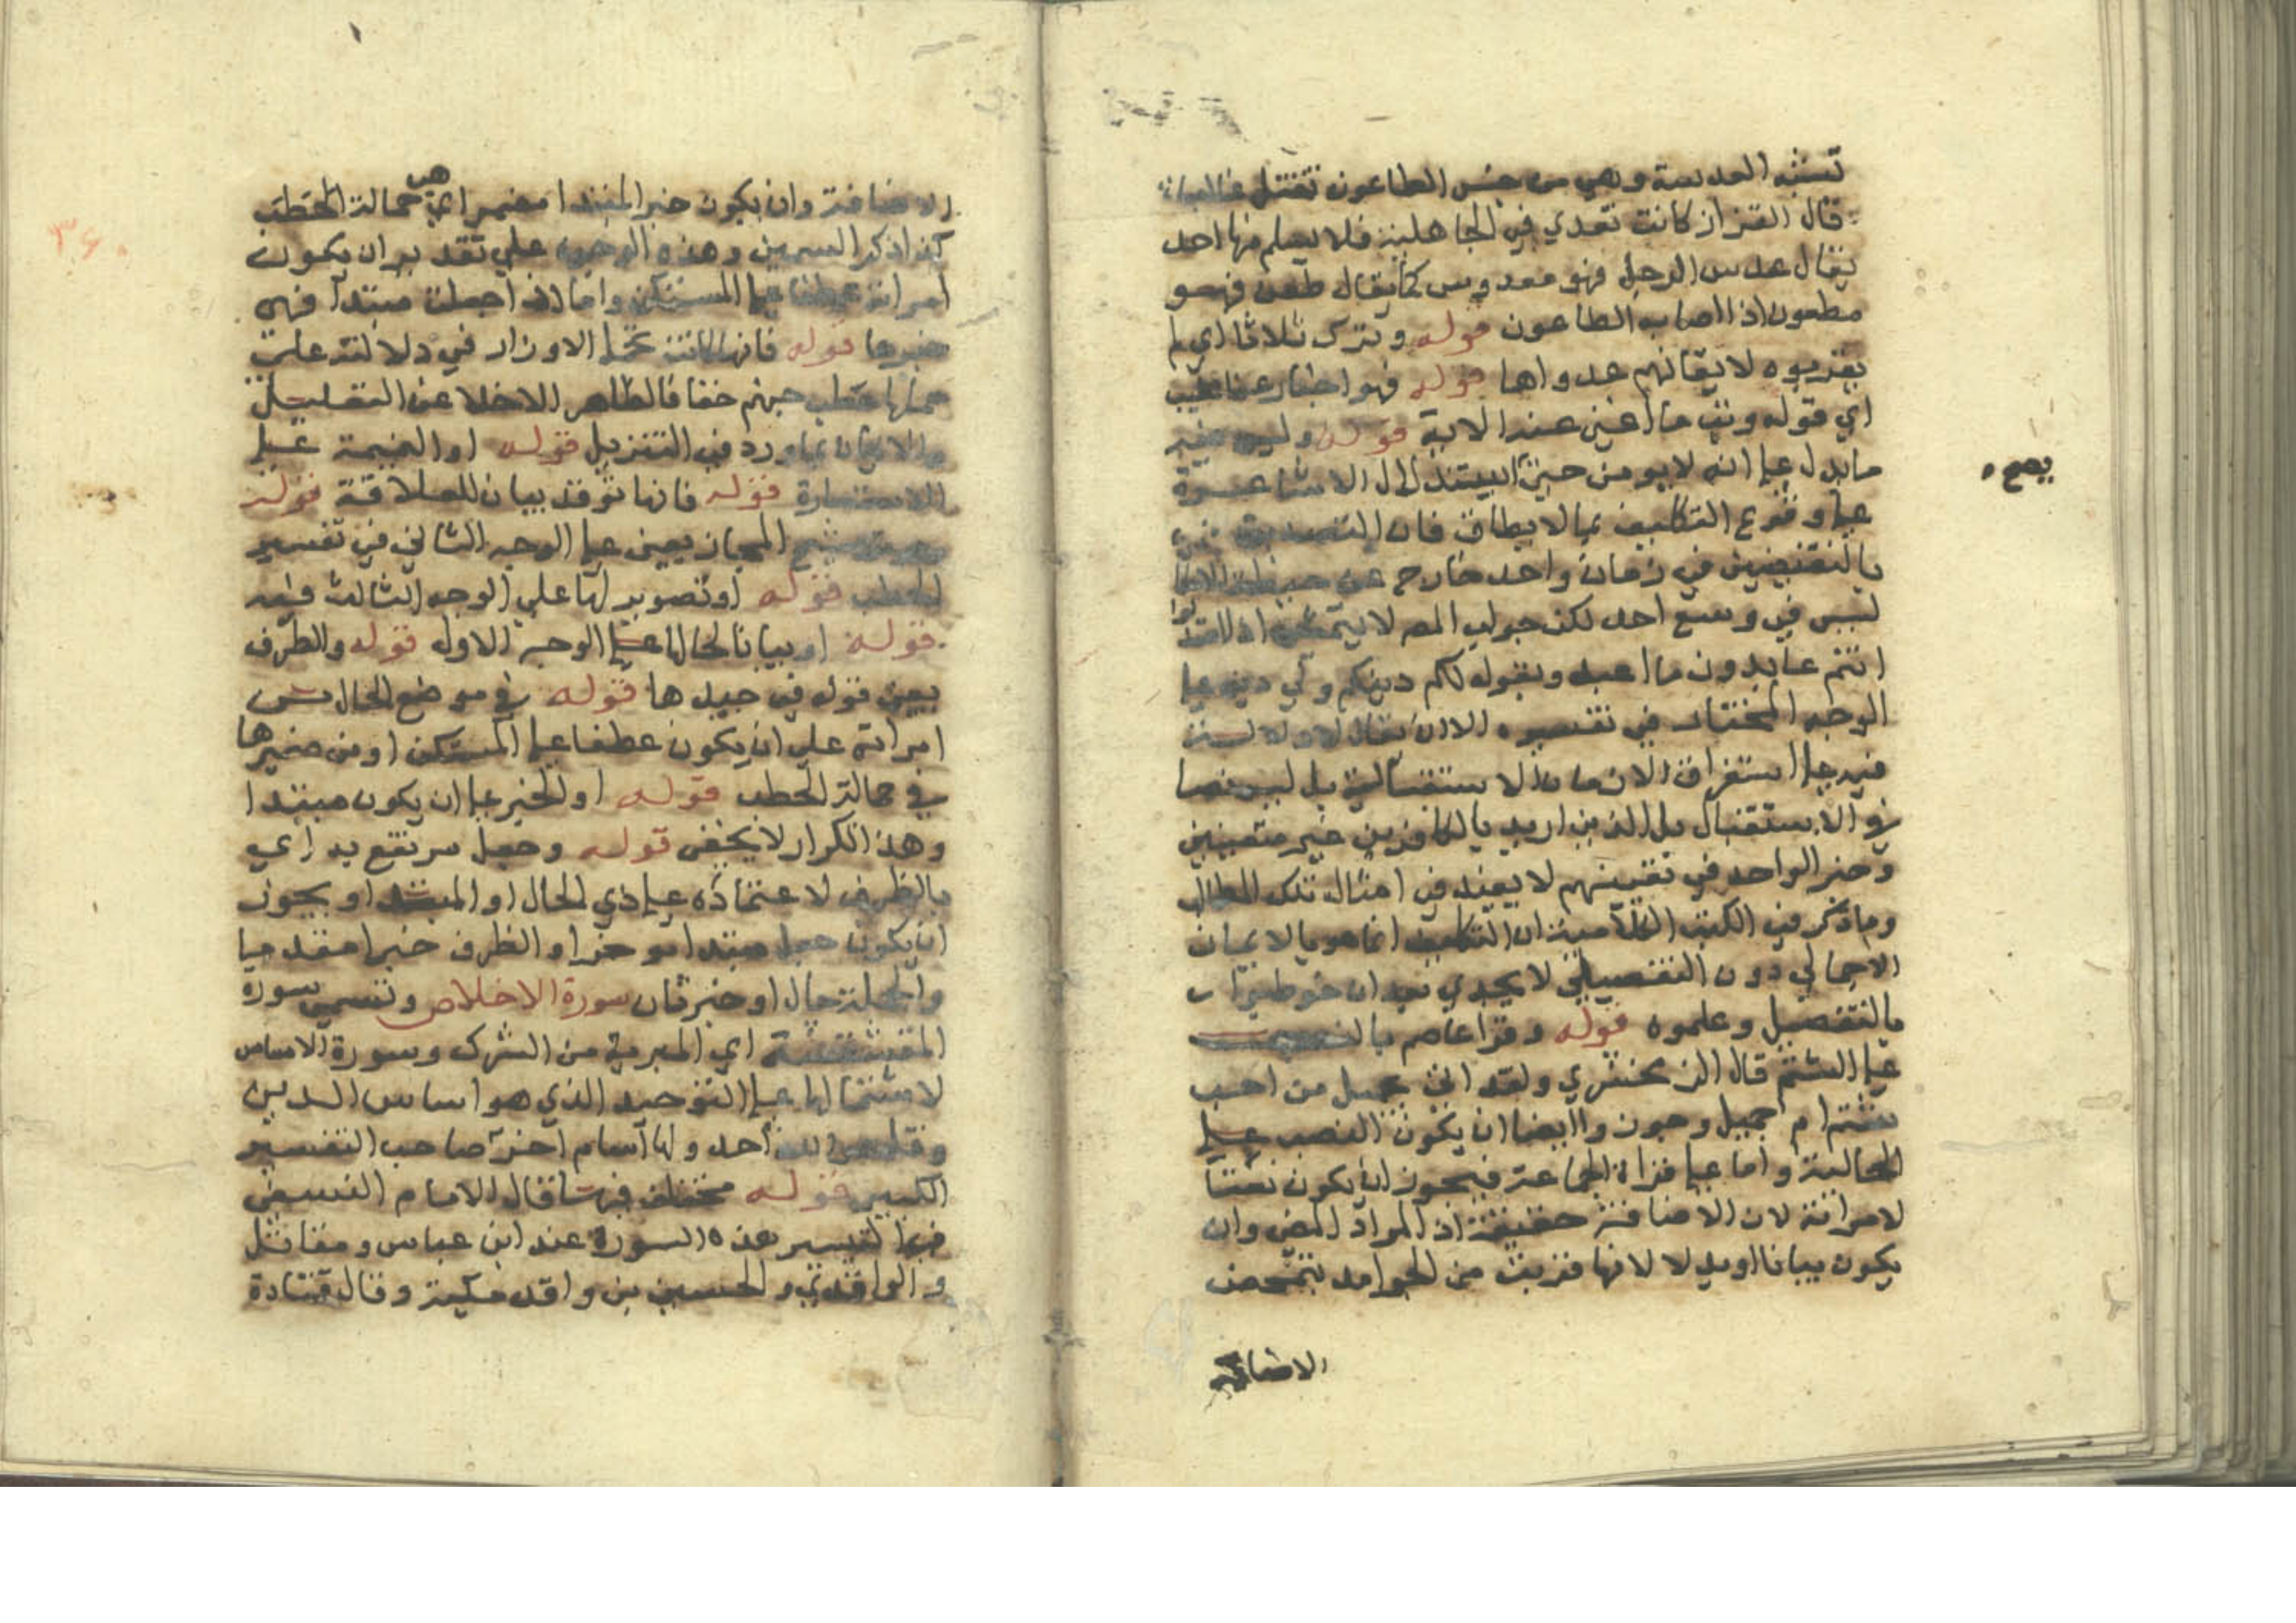 تشبه العدسة وهي من جنس الطاعون تقتل غالبا
قال القزاز كانت تعدي في الجاهلية فلا يسلم منها احد
يقال عدس الرجل فهو معدوس كما يقال طعن فهو
مطعون اذا اصابه الطاعون قوله وترك ثلاثا اي لم
يقربوه لا تقائهم عدواها قوله فهو اخبار عن الغيب
اي قوله وتب ما اغنى عنه الاية قوله وليس فيه
ما يدل على انه لا يومن حين استدلال الاشاعرة
على وقوع التكليف بما لا يطاق فان التصديق
بالنقيضين في زمان واحد خارج عن
ليس في وسع احد لكن جواب المص لا يتمشى
انتم عابدون ما اعبد وبقوله لكم دينكم ولي دين على
الوجه المختار في تفسيره الا ان يقال لا دلالة
فيه على استغراق الازمان الاستقبالية بل ليس نصا
في الاستقبال بل الذين اريد بالكافرين غير متعينين
وخبر الواحد في تعيينهم لا يفيد في امثال تلك المطالب
وما ذكر في الكتب الكلامية ان التكليف انما هو بالايمان
الاجمالي دون التفصيلي لا يجدي بعد ان خوطبوا
بالتفصيل وعلموه قوله وقرا عاصم بالنصب
على الشتم قال الزمخشري ولقد اتى بجميل من احب
شتم ام جميل وجوزوا ايضا ان يكون النصب على
الحالية واما على قراة الجماعة فيجوز ان يكون نعتا
لامراته لان الاضافة حقيقة اذ المراد المضي وان
يكون بيانا او بدلا لانها قربت من الجوامد بتمحض
الاضافة
يصح
الاضافة وان يكون خبر المبتدا مضمر اي هي حمالة الحطب
كذا ذكر السمين وهذه الوجوه على تقدير ان يكون
امراته عطفا على المستكن واما اذا جعلت مبتدا فهي
خبرها قوله فانها كانت تحمل الاوزار في دلالته على
حملها حطب جهنم خفا فالظاهر الاخلا عن التعليل
والاتيان بما ورد في التنزيل قوله او النميمة على
الاستعارة قوله فانها توقد بيان للعلاقة قوله
وهو ترشيح المجاز يعني على الوجه الثاني في تفسير
الحطب قوله او تصوير لها على الوجه الثالث فيه
قوله او بيانا لحالها على الوجه الاول قوله والظرف
يعني قوله في جيدها قوله في موضع الحال من
امراته على ان يكون عطفا على المستكن او من ضميرها
في حمالة الحطب قوله او الخبر على ان يكون مبتدا
وهذا تكرار لا يخفى قوله وحبل مرتفع به اي
بالظرف لاعتماده على ذي الحال او المبتدا ويجوز
ان يكون حبل مبتدا موخرا والظرف خبرا مقدما
والجملة حال او خبر ثان سورة الاخلاص وتسمى سورة
المقشقشة اي المبرية من الشرك وسورة الاساس
لاشتمالها على التوحيد الذي هو اساس الدين
وقل هو الله احد ولها اسام اخر صاحب التفسير
الكبير قوله مختلف فيها قال الامام النسفي
في التيسير هذه السورة عند ابن عباس ومقاتل
والواقدي والحسين بن واقد مكية وقال قتادة
٣٤٠